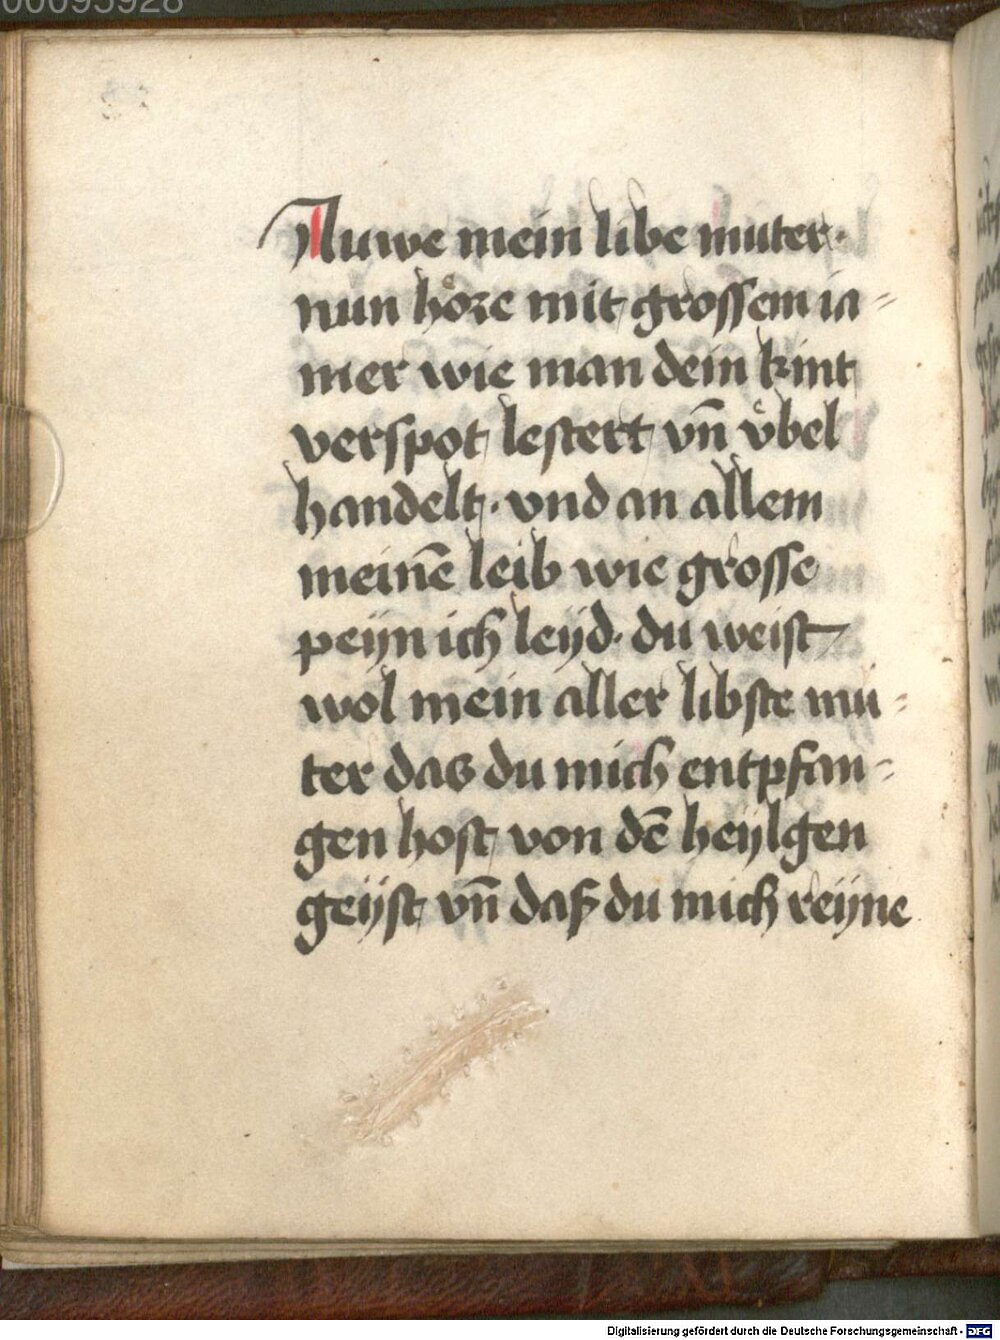 00095928
Auwe mein libe muter·
nun hoͤre mit grossem ia-
mer wie man dein kint
verspot lestert vn̄ vͤbel
handelt · vnd an allem
meinē leib wie grosse
peyn ich leyd · du weist
wol mein aller libste mu-
ter das du mich entpfan-
gen host von dē heylgen
geyst vn̄ daß du mich reyne
Digitalisierung gefördert durch die Deutsche Forschungsgemeinschaft - DFG